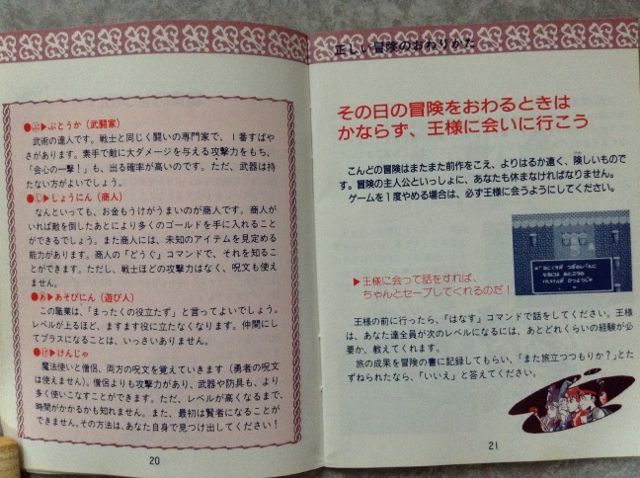 ▶ぶとうか（武闘家）
武術の達人です。戦士と同じく闘いの専門家で、１番すばや
さがあります。素手で敵に大ダメージを与える攻撃力をもち、
「会心の一撃！」も、出る確率が高いのです。ただ、武器は持
たない方がよいでしょう。
▶しょうにん（商人）
なんといっても、お金もうけがうまいのが商人です。商人が
いれば敵を倒したあとにより多くのゴールドを手に入れること
ができるでしょう。また商人には、未知のアイテムを見定める
能力があります。商人の「どうぐ」コマンドで、それを知ること
ができます。ただし、戦士ほどの攻撃力はなく、呪文も使え
ません。
▶あそびにん（遊び人）
この職業は、「まったくの役立たず」と言ってよいでしょう。
レベルが上るほど、ますます役に立たなくなります。仲間にし
てプラスになることは、いっさいありません。
▶けんじゃ
魔法使いと僧侶、両方の呪文を覚えていきます（勇者の呪文
は使えません）。僧侶よりも攻撃力があり、武器や防具も、より
多く使いこなすことができます。ただ、レベルが高くなるまで、
時間がかかるかも知れません。また、最初は賢者になることが
できません。その方法は、あなた自身で見つけ出してください！
20
正しい冒険のおわりかた
その日の冒険をおわるときは
かならず、王様に会いに行こう
こんどの冒険はまたまた前作をこえ、よりはるか遠く、険しいもので
す。冒険の主人公といっしょに、あなたも休まなければなりません。
ゲームを１度やめる場合は、必ず王様に会うようにしてください。
▶王様に会って話をすれば、
ちゃんとセーブしてくれるのだ！
王様の前に行ったら、「はなす」コマンドで話をしてください。王様
は、あなた達全員が次のレベルになるには、あとどれくらいの経験が必
要か、教えてくれます。
旅の成果を冒険の書に記録してもらい、「また旅立つつもりか？」とた
ずねられたら、「いいえ」と答えてください。
21